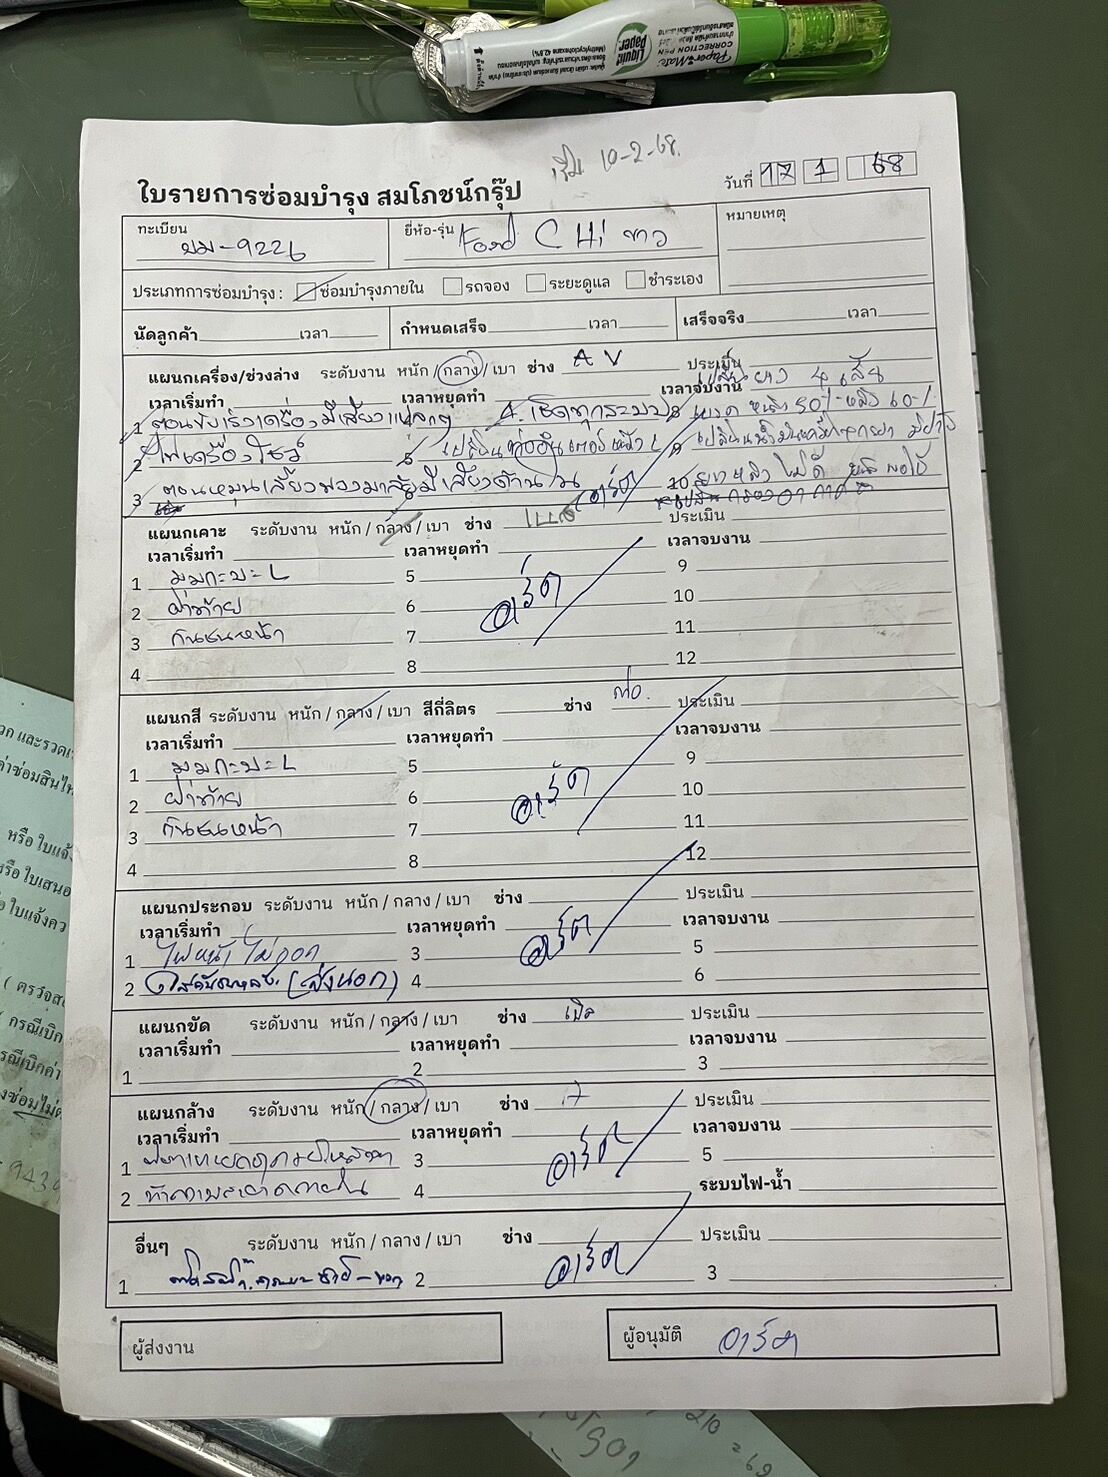 Paper Mate
CORRECTION PEN
Liquid Paper
(Methylcyclohexane 42.8%)
เริ่ม 10-2-68.
ใบรายการซ่อมบำรุง สมโภชน์กรุ๊ป
วันที่ 17 1 68
ทะเบียน ยี่ห้อ-รุ่น Ford หมายเหตุ
บม-9226
ประเภทการซ่อมบำรุง : ซ่อมบำรุงภายใน รถจอง ระยะดูแล ชำระเอง
นัดลูกค้า เวลา กำหนดเสร็จ เวลา เสร็จจริง เวลา
แผนกเครื่อง/ช่วงล่าง ระดับงาน หนัก / กลาง / เบา ช่าง AV ประเมิน
เวลาเริ่มทำ เวลาหยุดทำ เวลาจบงาน
เปลี่ยนยาง 4 เส้น
1 ตอนขับเร่งเครื่องมีเสียงแปลกๆ 4. เช็คทุกระบบ 8 เบรค หน้า 50% หลัง 60%
2 ไฟเครื่องโชว์ 5 9 เปลี่ยนน้ำมันเครื่อง
3 ตอนหมุนเลี้ยวพวงมาลัยมีเสียงด้านใน อาร์ต 10 ยางหลังไม่ดี หน้าพอใช้
กรองอากาศ
แผนกเคาะ ระดับงาน หนัก / กลาง / เบา ช่าง ประเมิน
เวลาเริ่มทำ เวลาหยุดทำ เวลาจบงาน
1 มุมกะบะ L 5 9
2 ฝาท้าย 6 อาร์ต 10
3 กันชนหน้า 7 11
4 8 12
แผนกสี ระดับงาน หนัก / กลาง / เบา สีกี่ลิตร ช่าง ประเมิน
เวลาเริ่มทำ เวลาหยุดทำ เวลาจบงาน
1 มุมกะบะ L 5 9
2 ฝาท้าย 6 อาร์ต 10
3 กันชนหน้า 7 11
4 8 12
แผนกประกอบ ระดับงาน หนัก / กลาง / เบา ช่าง ประเมิน
เวลาเริ่มทำ เวลาหยุดทำ เวลาจบงาน
1 ไฟหน้า ไม่ 3 อาร์ต 5
2 (ส่งนอก) 4 6
แผนกขัด ระดับงาน หนัก / กลาง / เบา ช่าง เปิล ประเมิน
เวลาเริ่มทำ เวลาหยุดทำ เวลาจบงาน
1 2 3
แผนกล้าง ระดับงาน หนัก / กลาง / เบา ช่าง ประเมิน
เวลาเริ่มทำ เวลาหยุดทำ เวลาจบงาน
1 3 อาร์ต 5
2 ทำความสะอาดภายใน 4 ระบบไฟ-น้ำ
อื่นๆ ระดับงาน หนัก / กลาง / เบา ช่าง ประเมิน
1 2 อาร์ต 3
ผู้ส่งงาน ผู้อนุมัติ อาร์ต